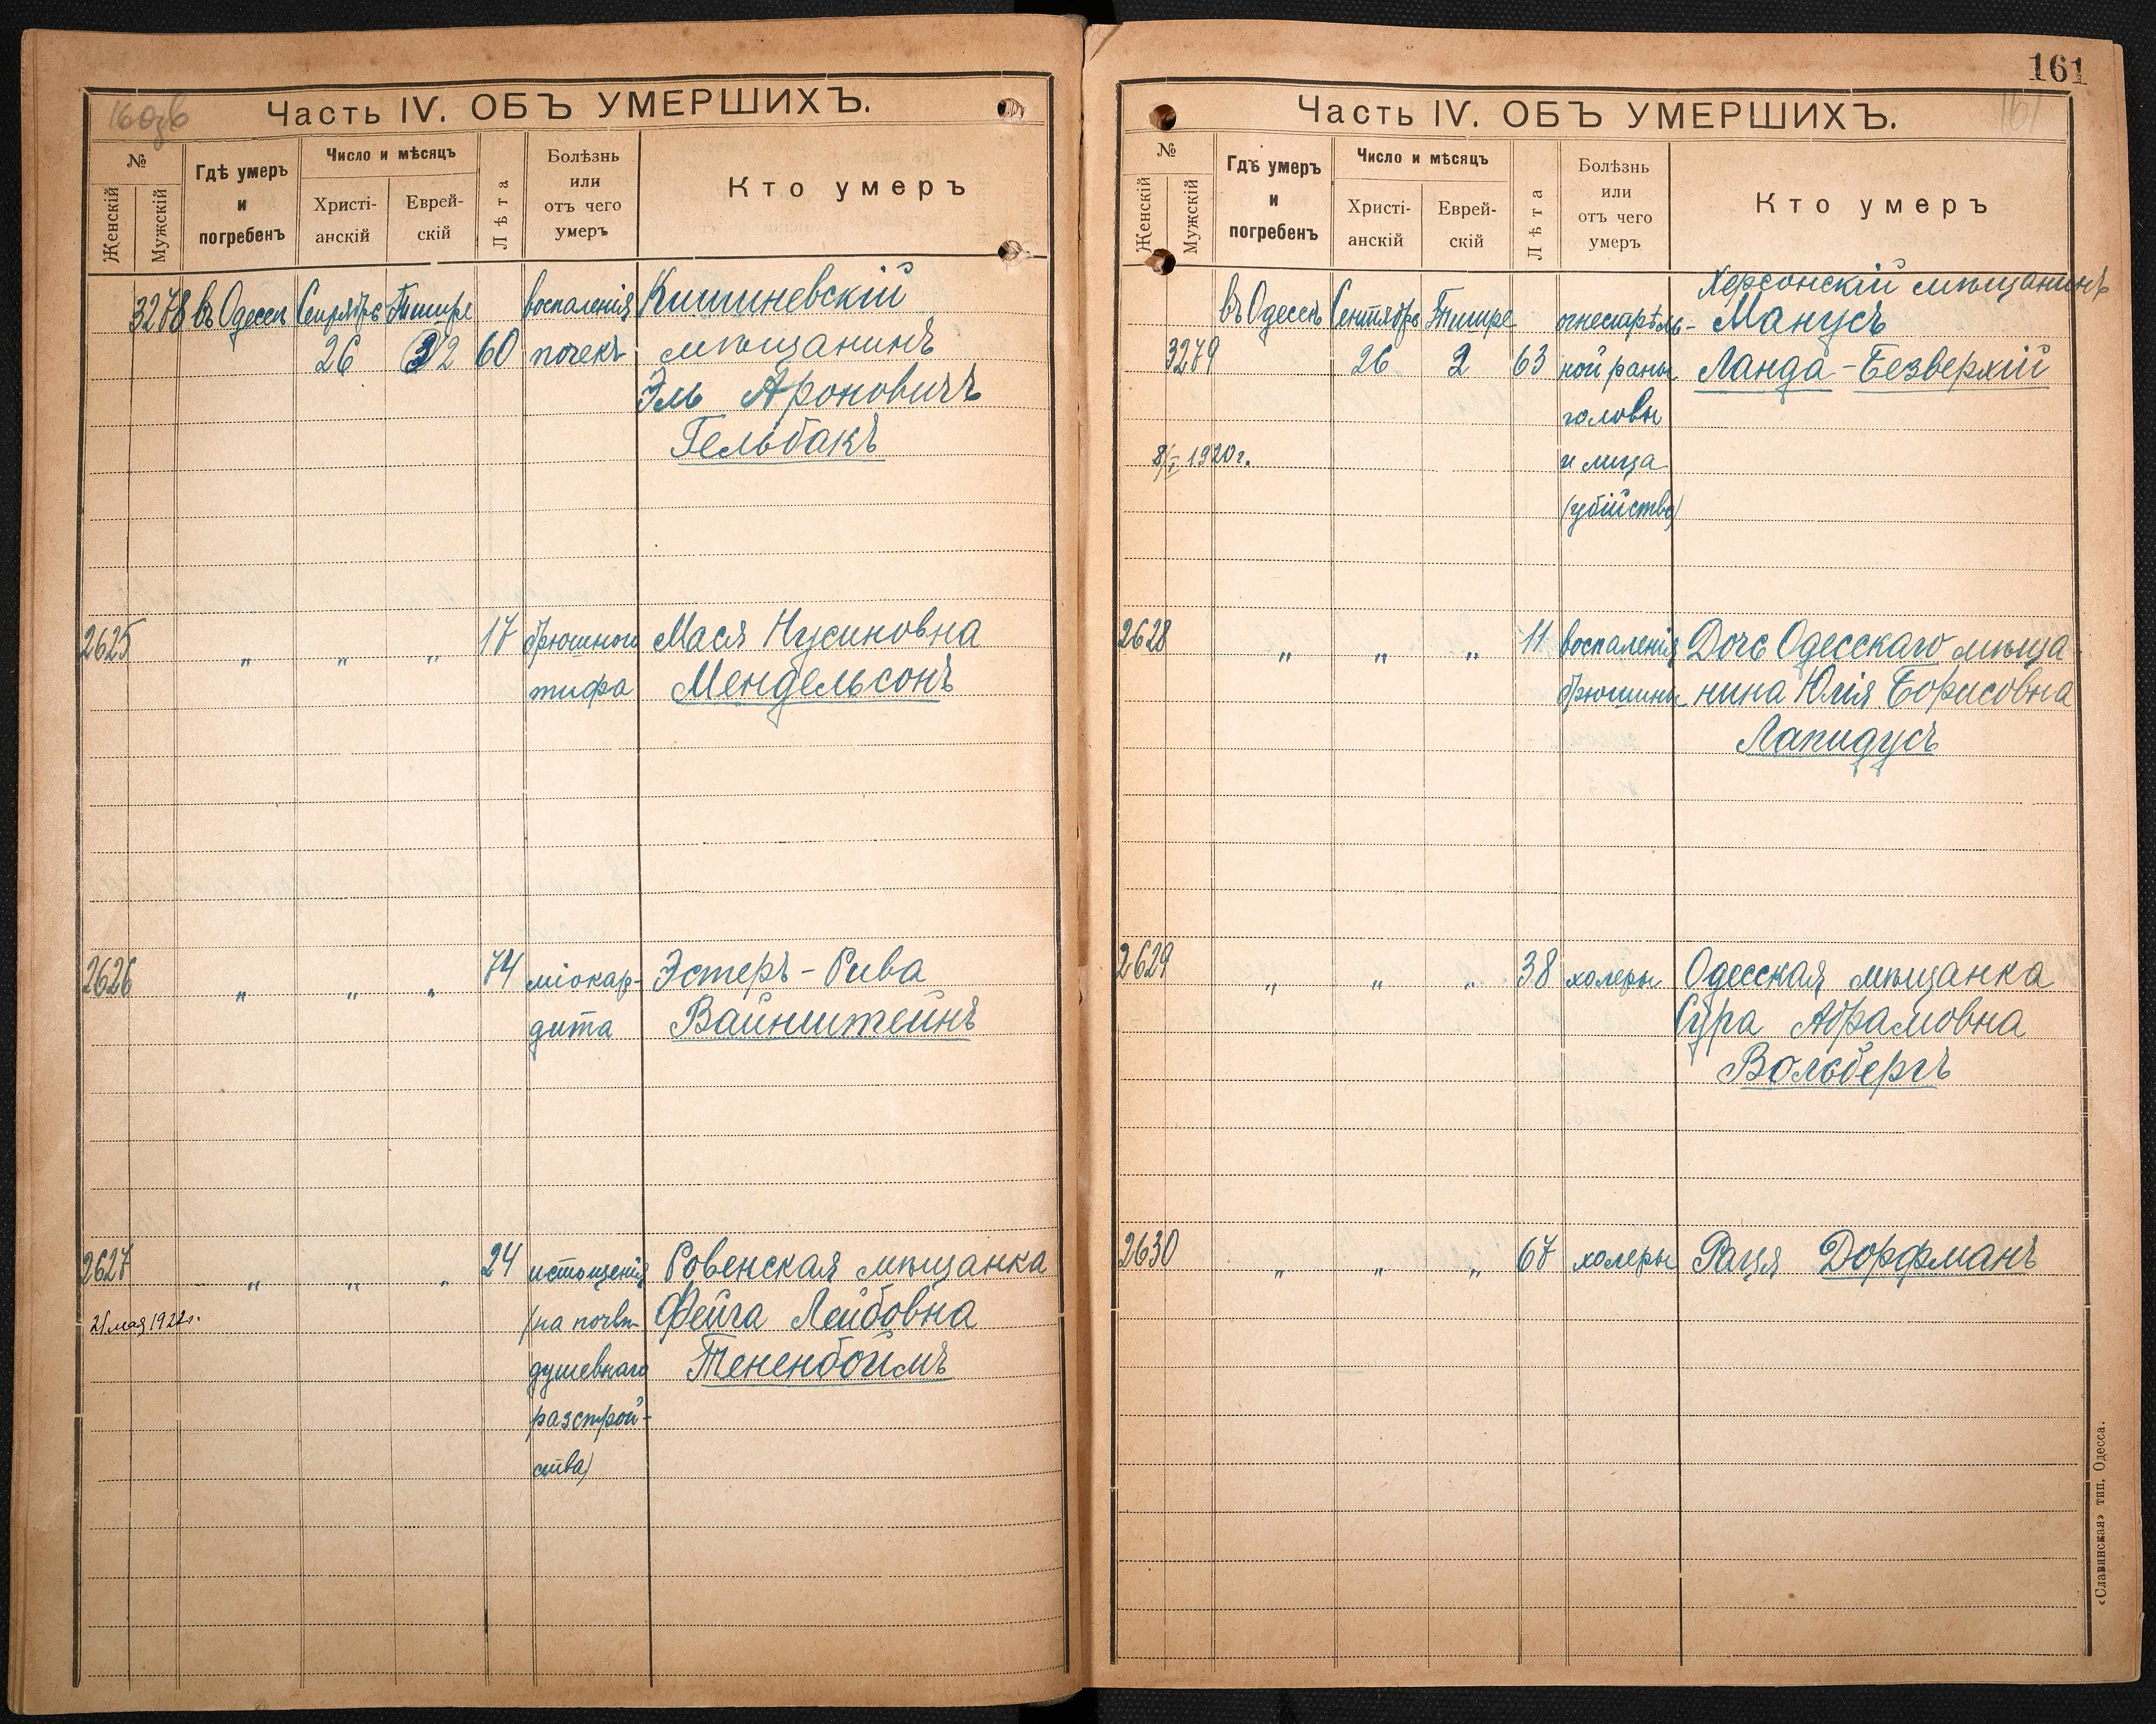 160зв
Часть IV. ОБЪ УМЕРШИХЪ.
№
Женскій
Мужскій
Гдѣ умеръ
и
погребенъ
Число и мѣсяцъ
Христі-
анскій
Еврей-
скій
Лѣта
Болѣзнь
или
отъ чего
умеръ
Кто умеръ
3278 въ Одессѣ Сентябрь Тишре воспаленія Кишиневскій
26 2 60 почекъ мѣщанинъ
Эль Ароновичъ
Гельбакъ
2625 " " " 17 брюшного Мася Нусиновна
тифа Мендельсонъ
2626 " " " 74 міокар- Эстеръ-Рива
дита Вайнштейнъ
2627 " " " 24 истощенія Ровенская мѣщанка
21 мая 1922г. (на почвѣ Фейга Лейбовна
душевнаго Тененбоймъ
разстрой-
ства)
161
161
Часть IV. ОБЪ УМЕРШИХЪ.
№
Женскій
Мужскій
Гдѣ умеръ
и
погребенъ
Число и мѣсяцъ
Христі-
анскій
Еврей-
скій
Лѣта
Болѣзнь
или
отъ чего
умеръ
Кто умеръ
Херсонскій мѣщанинъ
въ Одессѣ Сентябрь Тишре огнестрѣль- Манусъ
3279 26 2 63 ной раны Ланда-Безверхій
головы
8/I 1920г. и лица
(убійство)
2628 " " " 11 воспаленія Дочь Одесскаго мѣща
брюшины нина Юлія Борисовна
Лапидусъ
2629 " " " 38 холеры Одесская мѣщанка
Сура Абрамовна
Вольбергъ
2630 " " " 67 холеры Рація Дорфманъ
«Славянская» тип. Одесса.